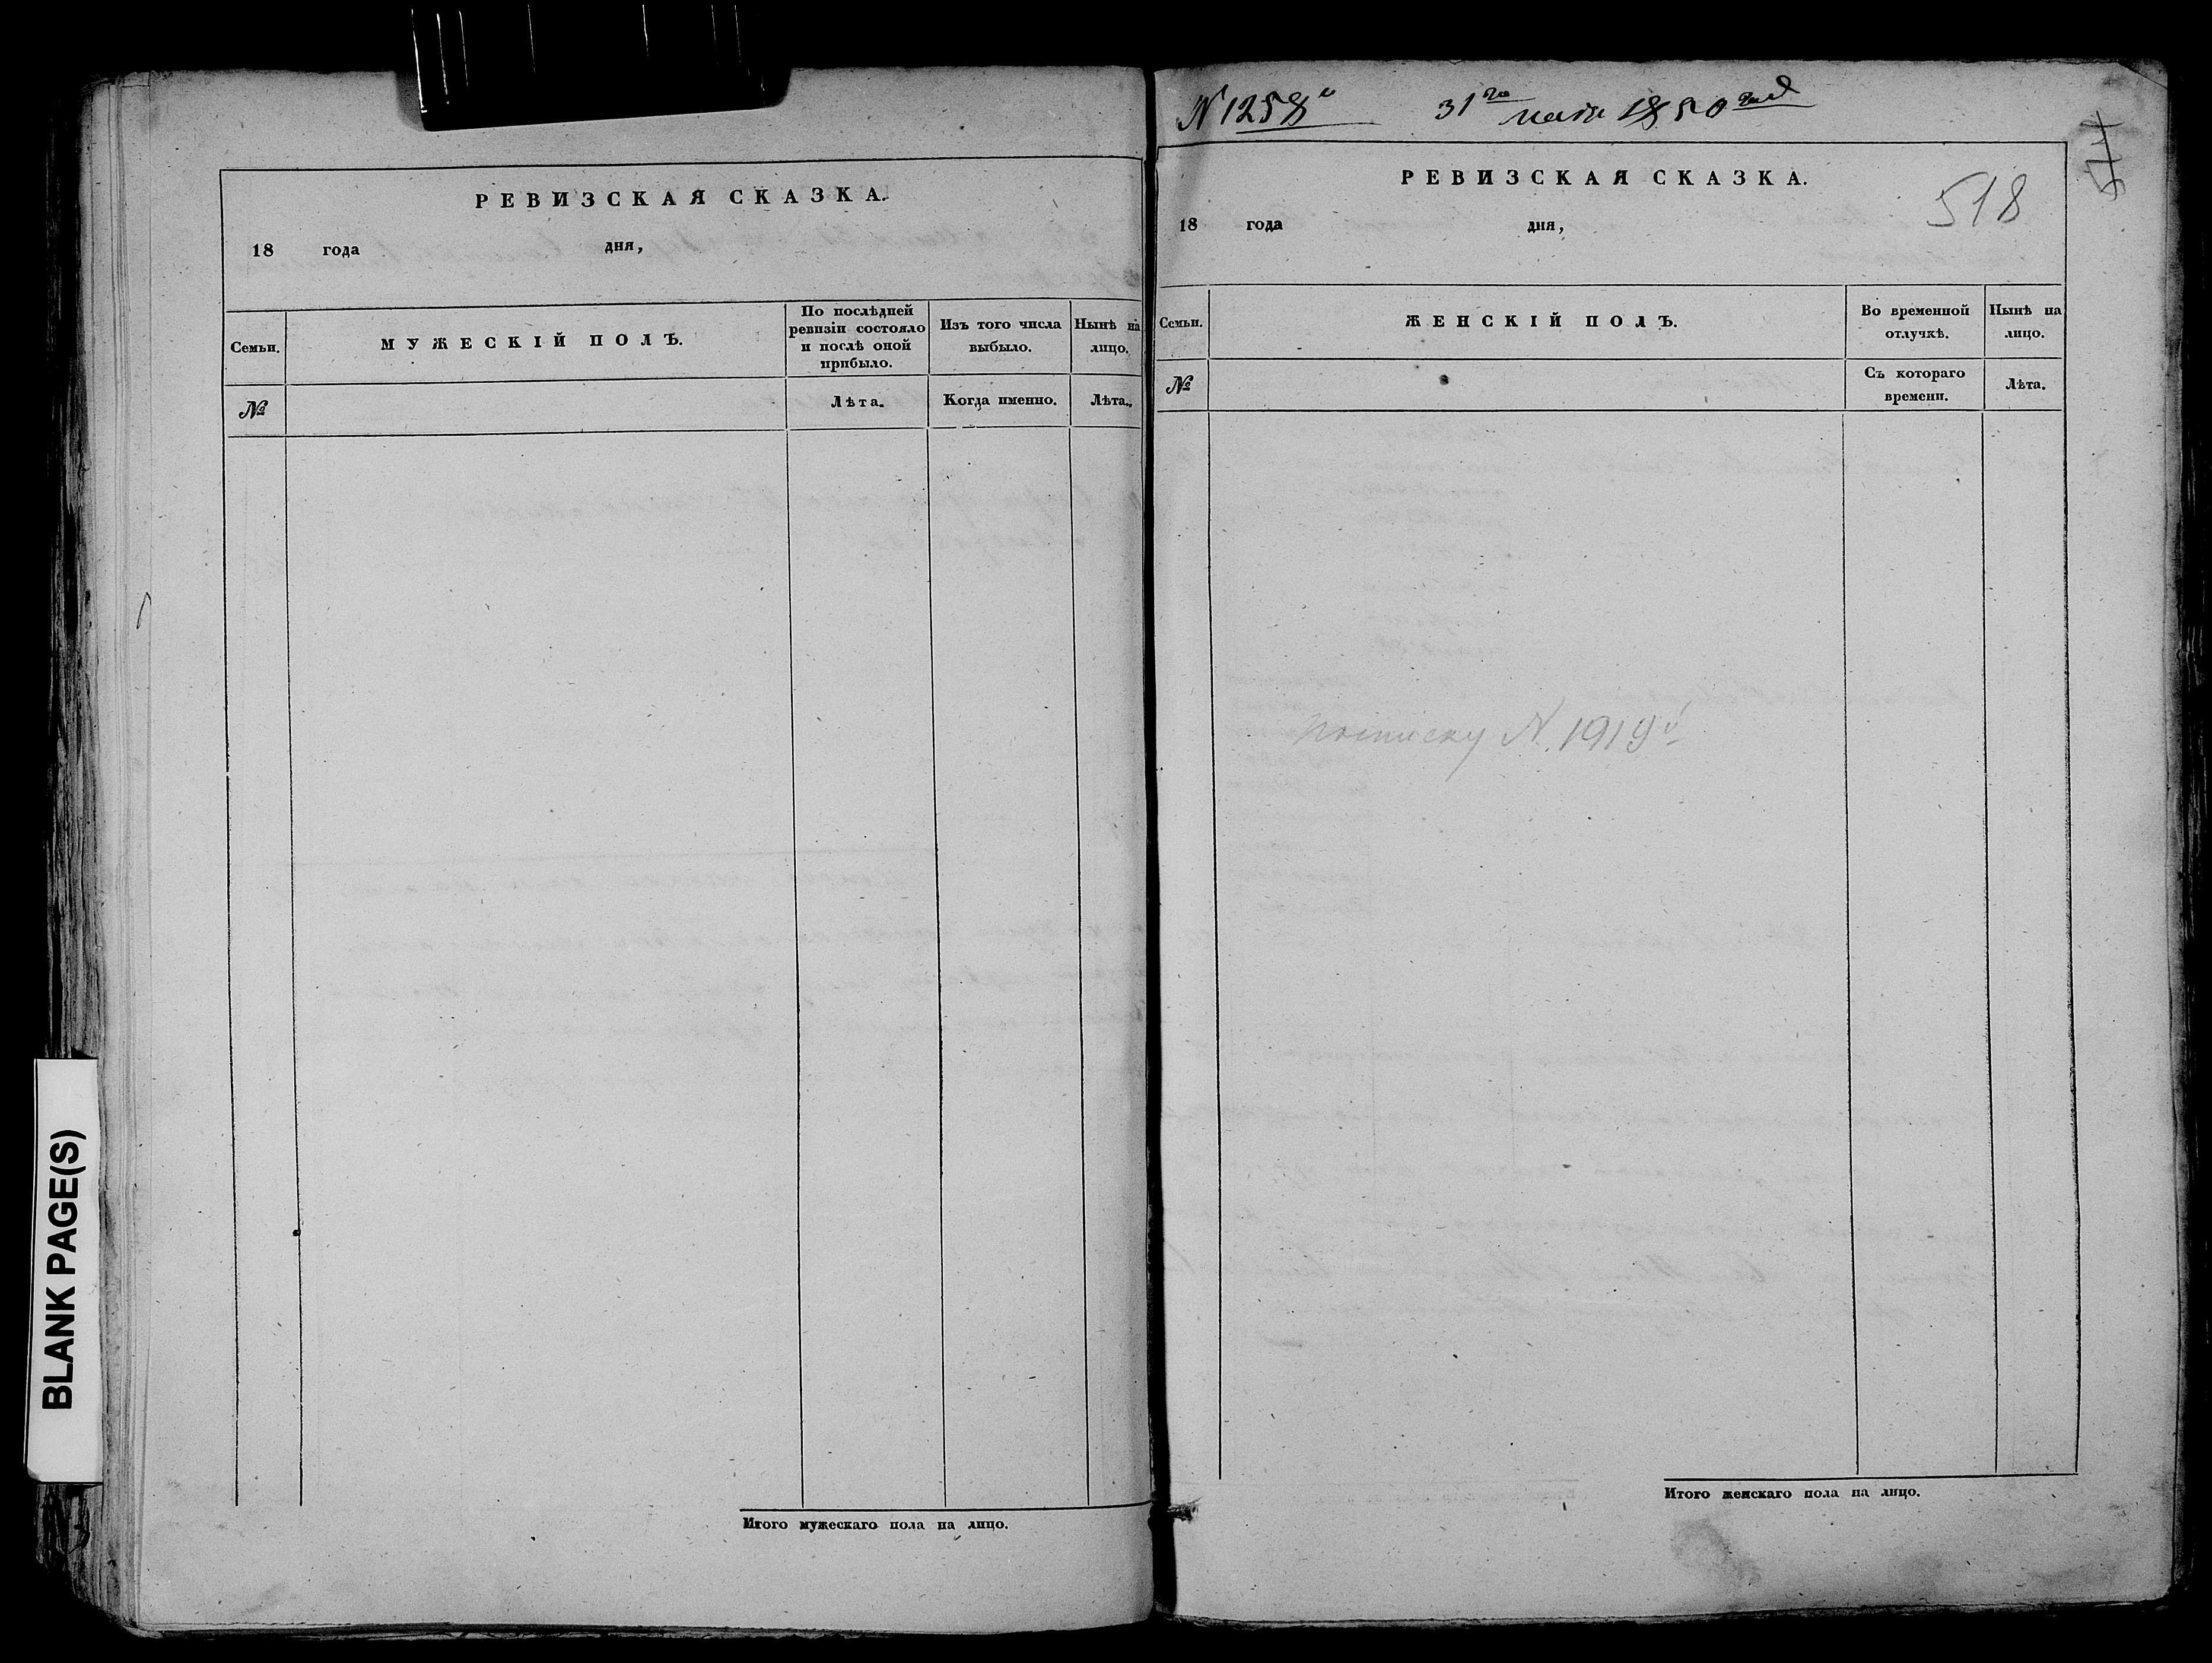 BLANK PAGE(S)
РЕВИЗСКАЯ СКАЗКА.
18 года дня,
Семьи.
МУЖЕСКІЙ ПОЛЪ.
По послѣдней ревизіи состояло и послѣ оной прибыло.
Изъ того числа выбыло.
Нынѣ на лицо.
№
Лѣта.
Когда именно.
Лѣта.
Итого мужескаго пола на лицо.
N 1258й 31го мая 1850 года
518
РЕВИЗСКАЯ СКАЗКА.
18 года дня,
Семьи.
ЖЕНСКІЙ ПОЛЪ.
Во временной отлучкѣ.
Нынѣ на лицо.
№
Съ котораго времени.
Лѣта.
N. 1919й
Итого женскаго пола на лицо.